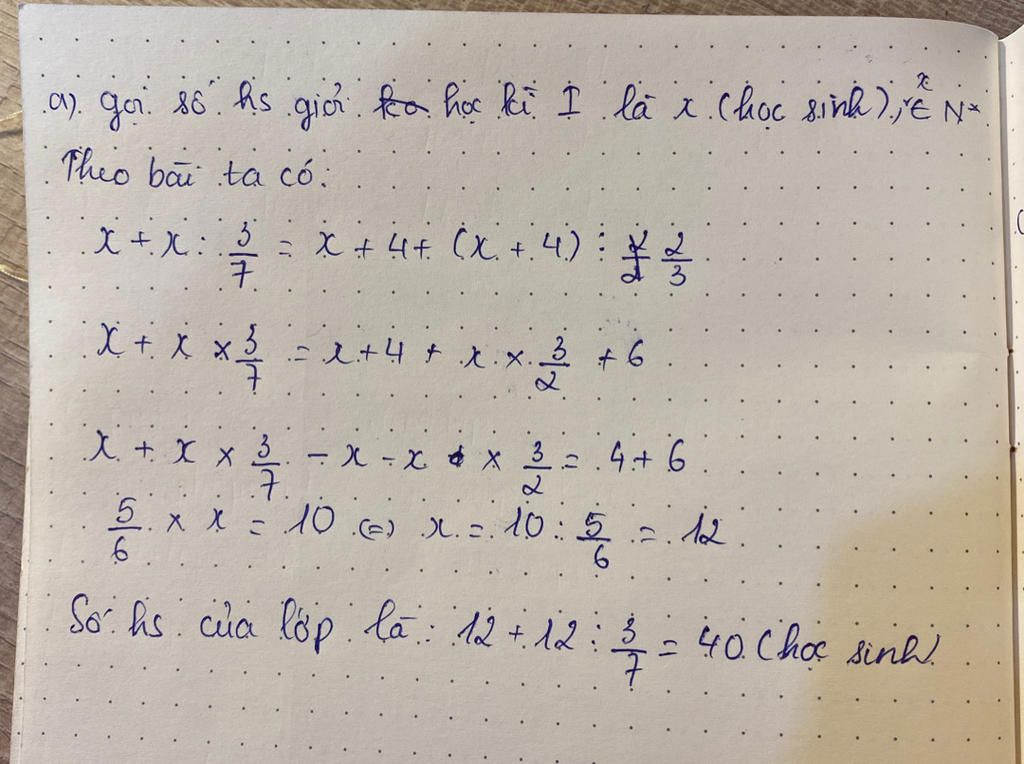 a). gọi số hs giỏi học kì I là x (học sinh), x ∈ N*
Theo bài ta có:
x + x : 3/7 = x + 4 + (x + 4) : 2/3
x + x × 3/7 = x + 4 + x × 3/2 + 6
x + x × 3/7 - x - x × 3/2 = 4 + 6
5/6 × x = 10 (=) x = 10 : 5/6 = 12
Số hs của lớp là: 12 + 12 : 3/7 = 40 (học sinh)